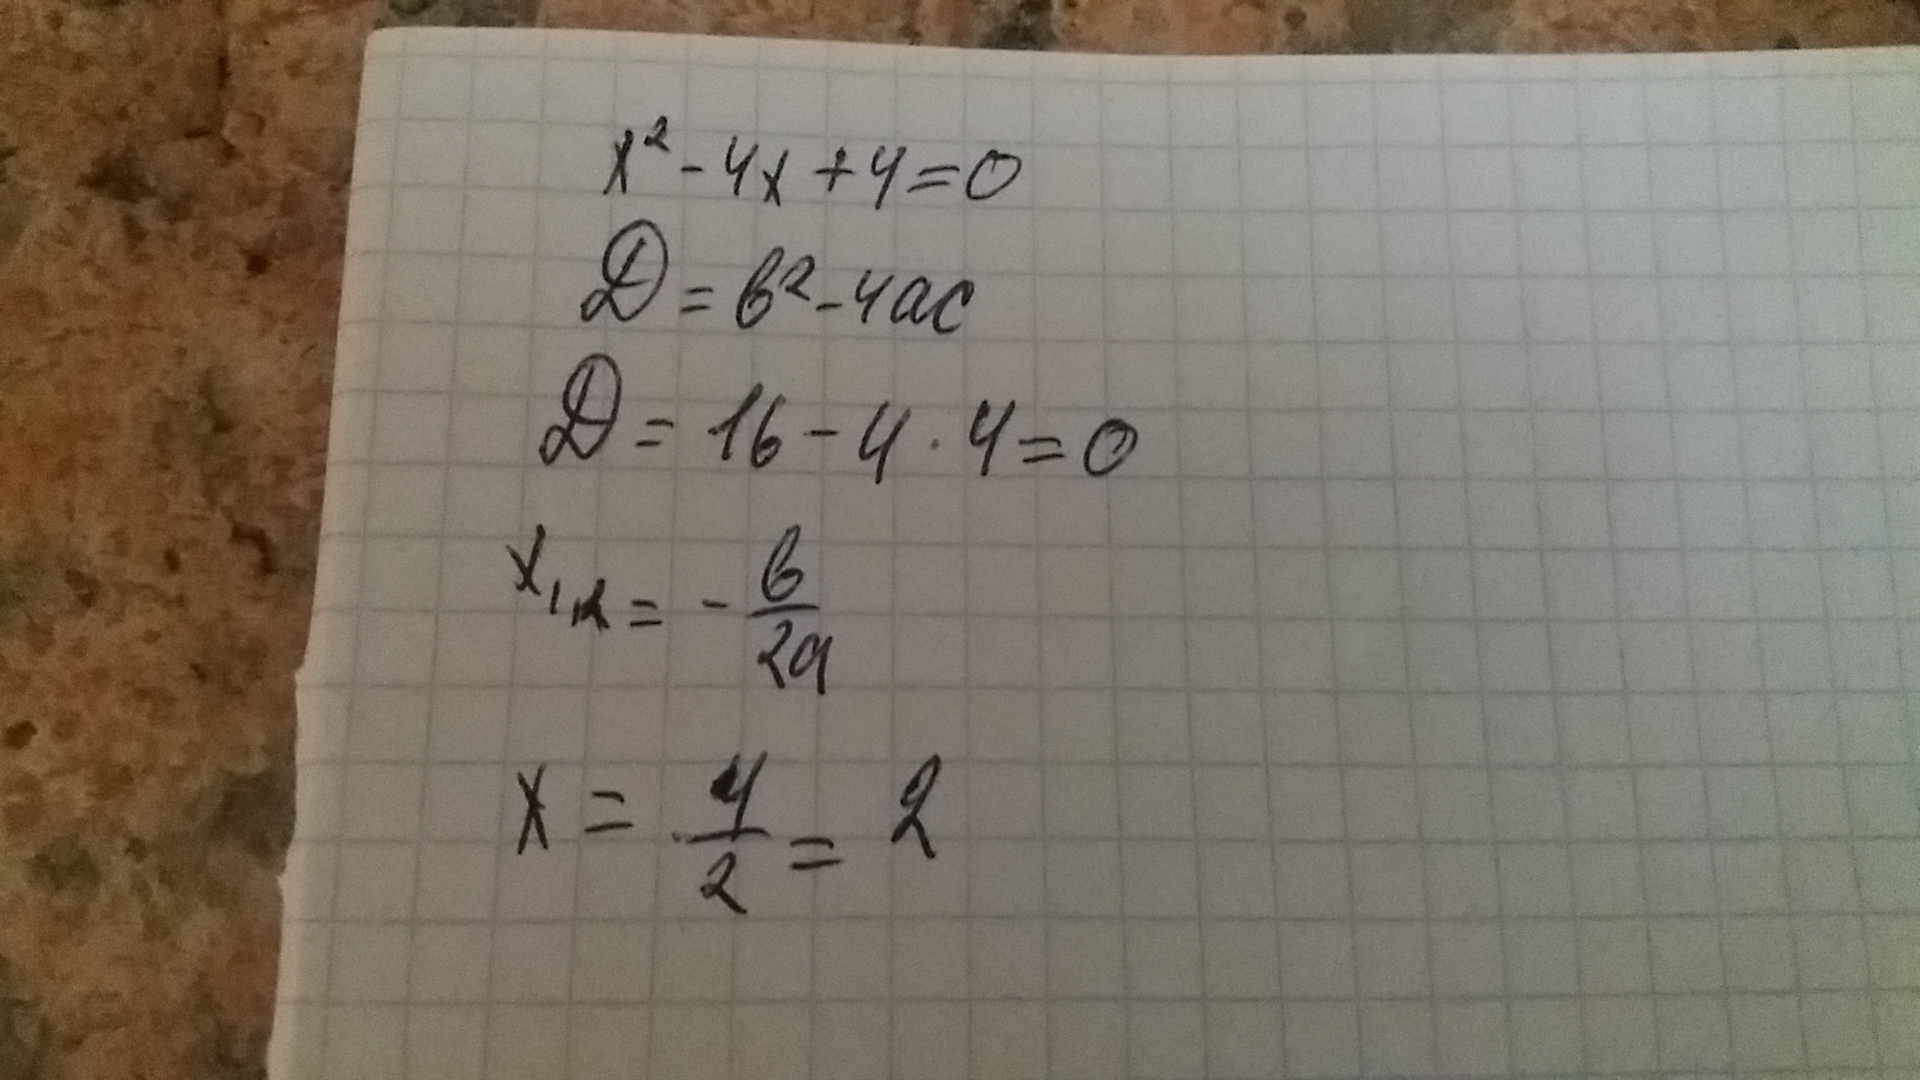 x² - 4x + 4 = 0
D = b² - 4ac
D = 16 - 4 · 4 = 0
x₁,₂ = - b/2a
x = 4/2 = 2